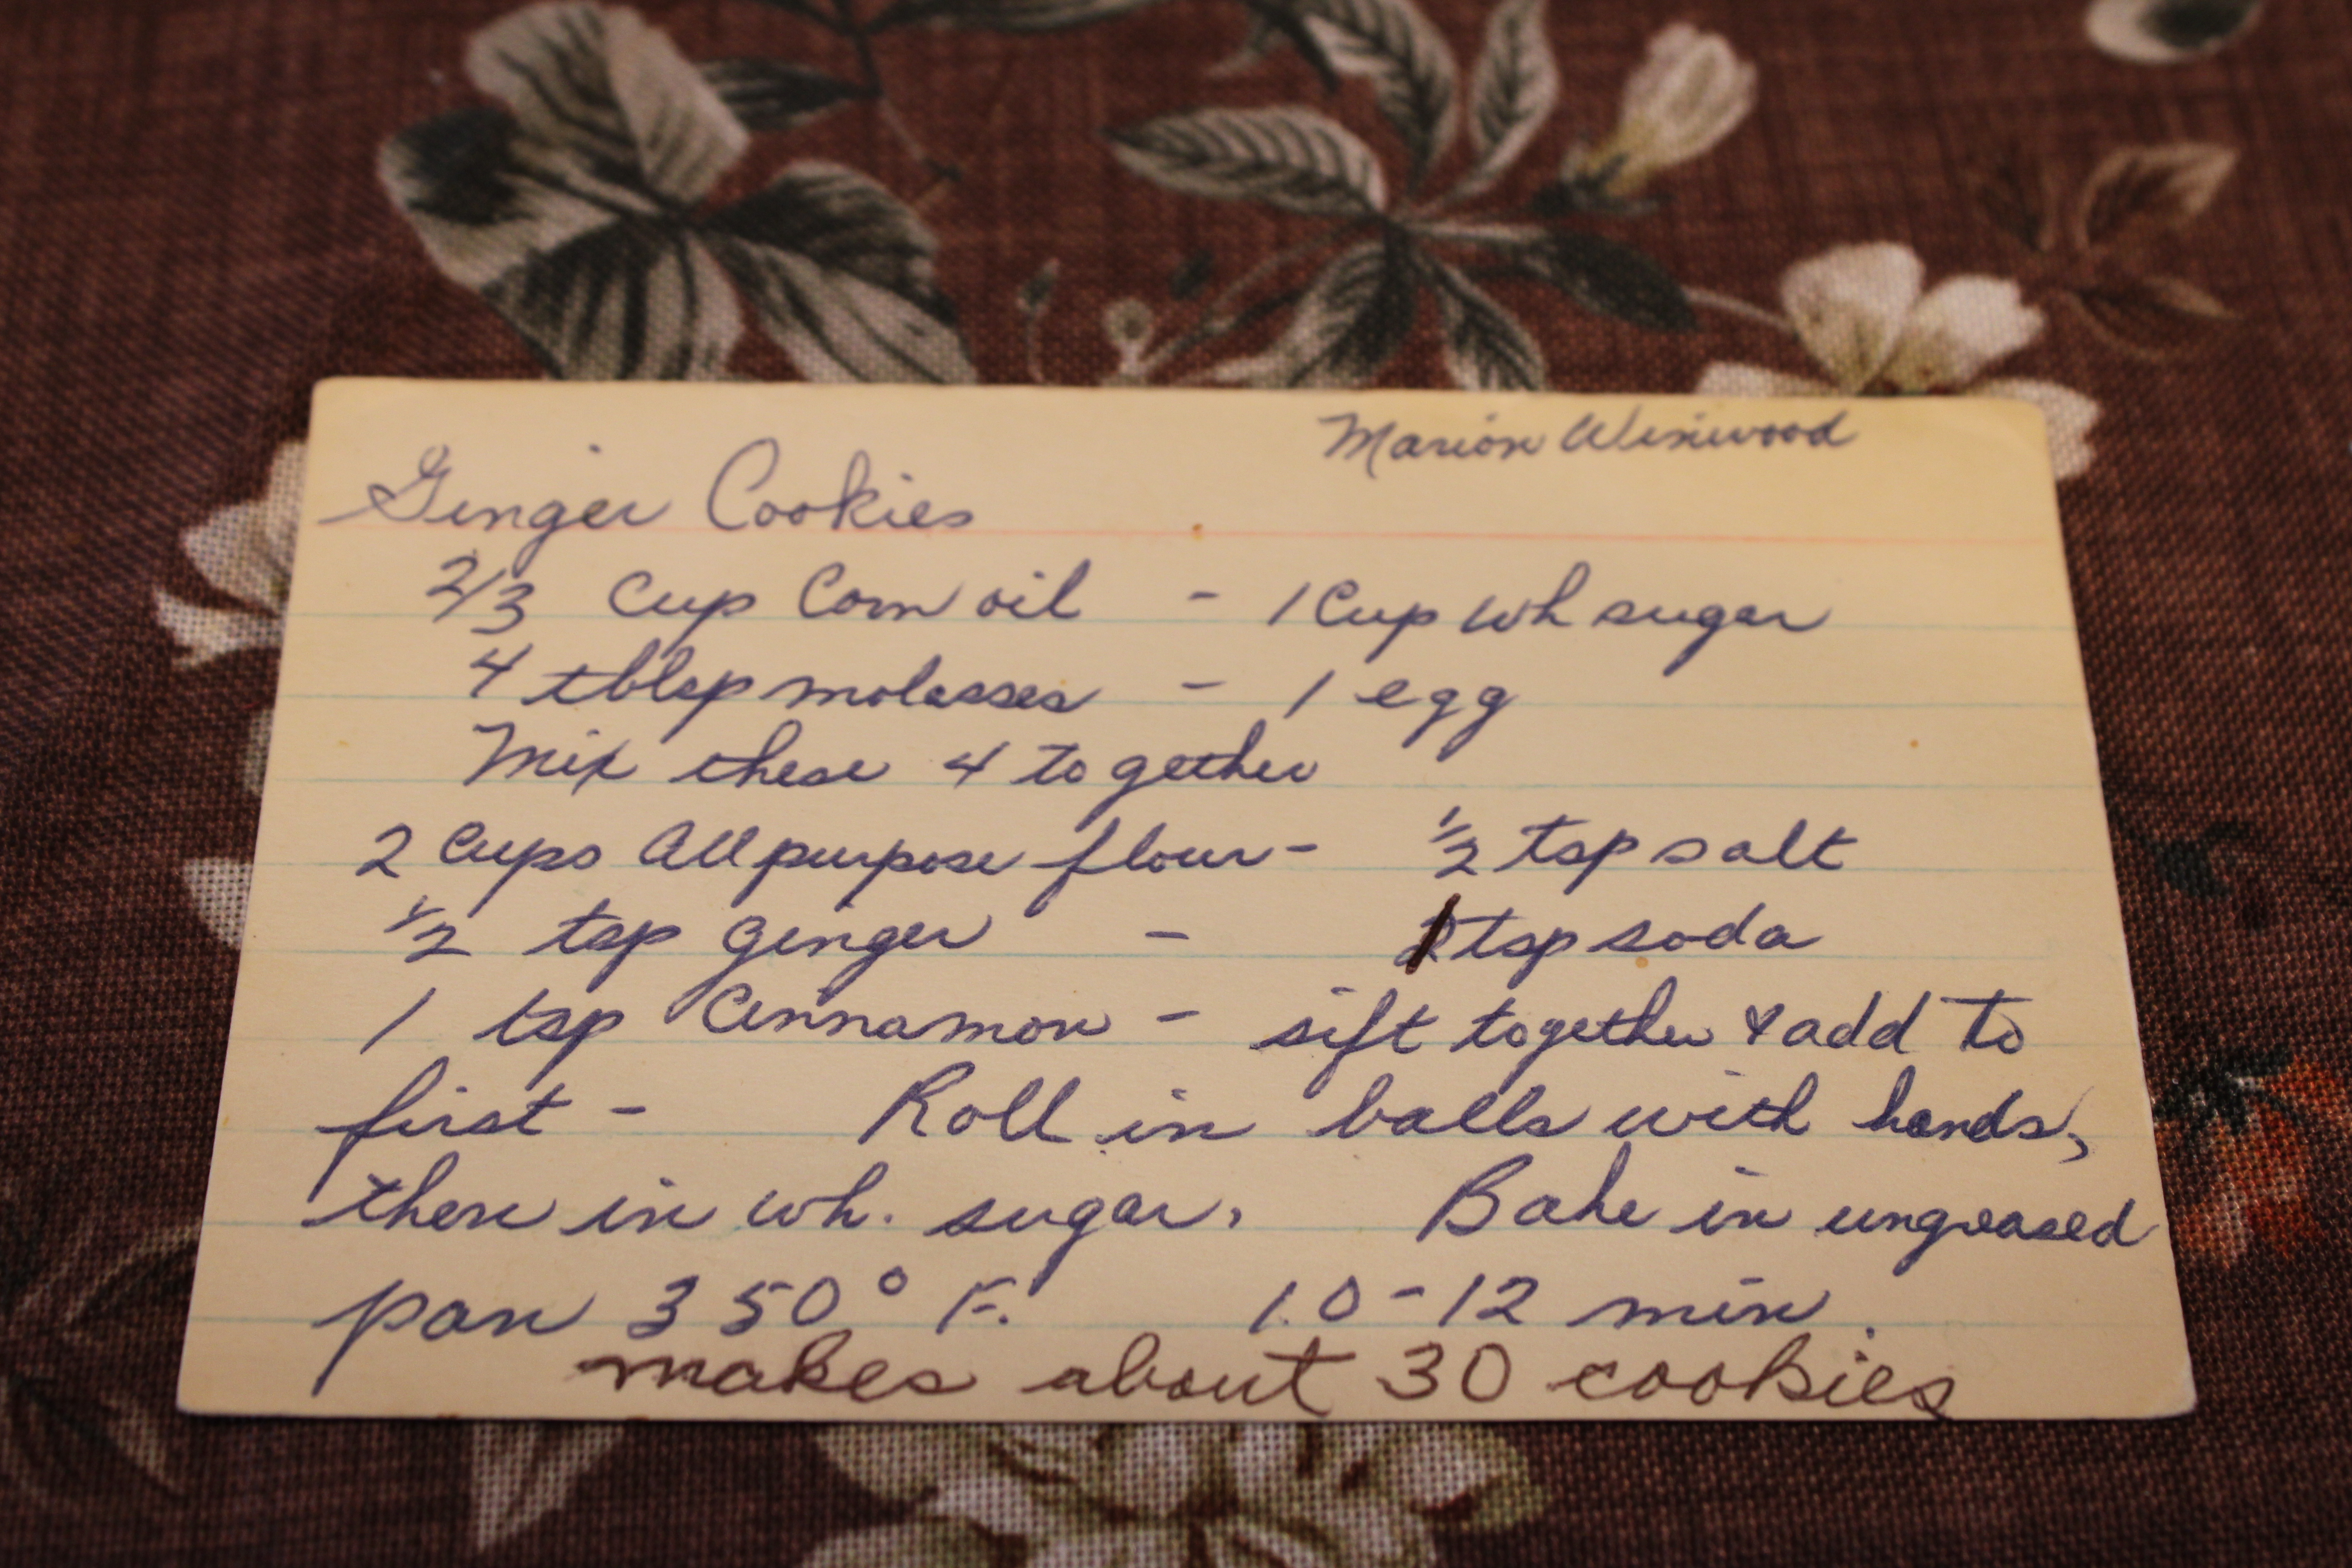 Marion Winwood
Ginger Cookies
2/3 Cup Corn oil - 1 Cup wh sugar
4 tblsp molasses - 1 egg
Mix these 4 together
2 Cups All purpose flour - 1/2 tsp salt
1/2 tsp ginger - 1 tsp soda
1 tsp Cinnamon - sift together & add to
first - Roll in balls with hands,
then in wh. sugar. Bake in ungreased
pan 350° F. 10-12 min.
makes about 30 cookies